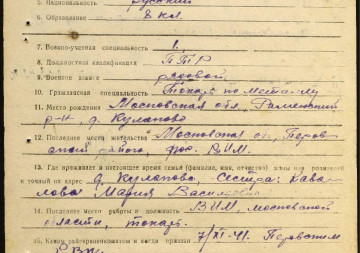 5. Национальность русский
6. Образование 8 кл.
7. Военно-учетная специальность 1
8. Должностная квалификация ПТР
9. Военное звание рядовой
10. Гражданская специальность Токарь по металлу
11. Место рождения Московская обл, Раменский
р-н, д. Куланово
12. Последнее место жительства Московская об, Перов-
ский район, ВИМ.
13. Где проживает в настоящее время семья (фамилия, имя, отчество) жены или родителей
и точный их адрес д. Куланово. Сестра: Кава-
лова Мария Васил
14. Последнее место работы и должность ВИМ, московской
области, токарь.
15. Каким райвоенкоматом и когда призван 7/XI-41. Перовским
РВК